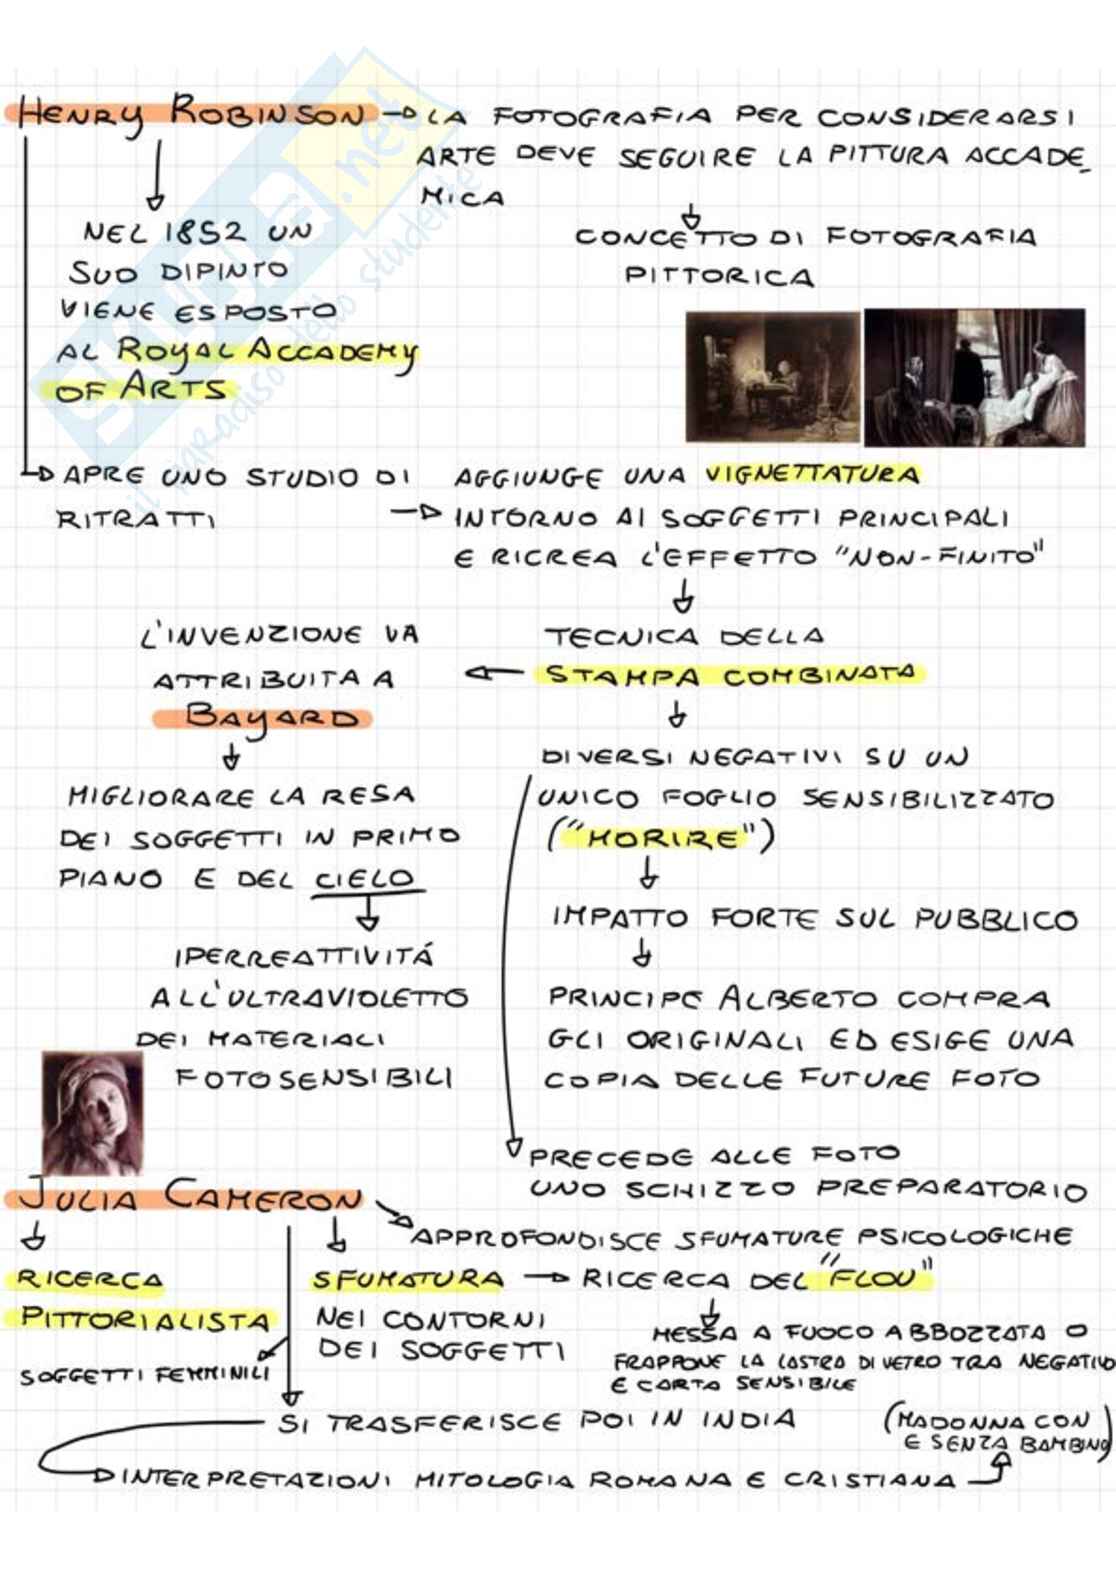 HENRY ROBINSON → LA FOTOGRAFIA PER CONSIDERARSI
ARTE DEVE SEGUIRE LA PITTURA ACCADE-
MICA
CONCETTO DI FOTOGRAFIA
PITTORICA
NEL 1852 UN
SUO DIPINTO
VIENE ESPOSTO
AL ROYAL ACCADEMY
OF ARTS
APRE UNO STUDIO DI
RITRATTI
AGGIUNGE UNA VIGNETTATURA
INTORNO AI SOGGETTI PRINCIPALI
E RICREA L'EFFETTO "NON-FINITO"
TECNICA DELLA
STAMPA COMBINATA
L'INVENZIONE VA
ATTRIBUITA A
BAYARD
MIGLIORARE LA RESA
DEI SOGGETTI IN PRIMO
PIANO E DEL CIELO
IPERREATTIVITÁ
ALL'ULTRAVIOLETTO
DEI MATERIALI
FOTOSENSIBILI
DIVERSI NEGATIVI SU UN
UNICO FOGLIO SENSIBILIZZATO
("MORIRE")
IMPATTO FORTE SUL PUBBLICO
PRINCIPE ALBERTO COMPRA
GLI ORIGINALI ED ESIGE UNA
COPIA DELLE FUTURE FOTO
PRECEDE ALLE FOTO
UNO SCHIZZO PREPARATORIO
JULIA CAMERON
APPROFONDISCE SFUMATURE PSICOLOGICHE
RICERCA
PITTORIALISTA
SOGGETTI FEMMINILI
SFUMATURA → RICERCA DEL "FLOU"
NEI CONTORNI
DEI SOGGETTI
MESSA A FUOCO ABBOZZATA O
FRAPPONE LA LASTRA DI VETRO TRA NEGATIVO
E CARTA SENSIBILE
SI TRASFERISCE POI IN INDIA
INTERPRETAZIONI MITOLOGIA ROMANA E CRISTIANA
(MADONNA CON
E SENZA BAMBINO)
skuola.net
il paradiso dello studente